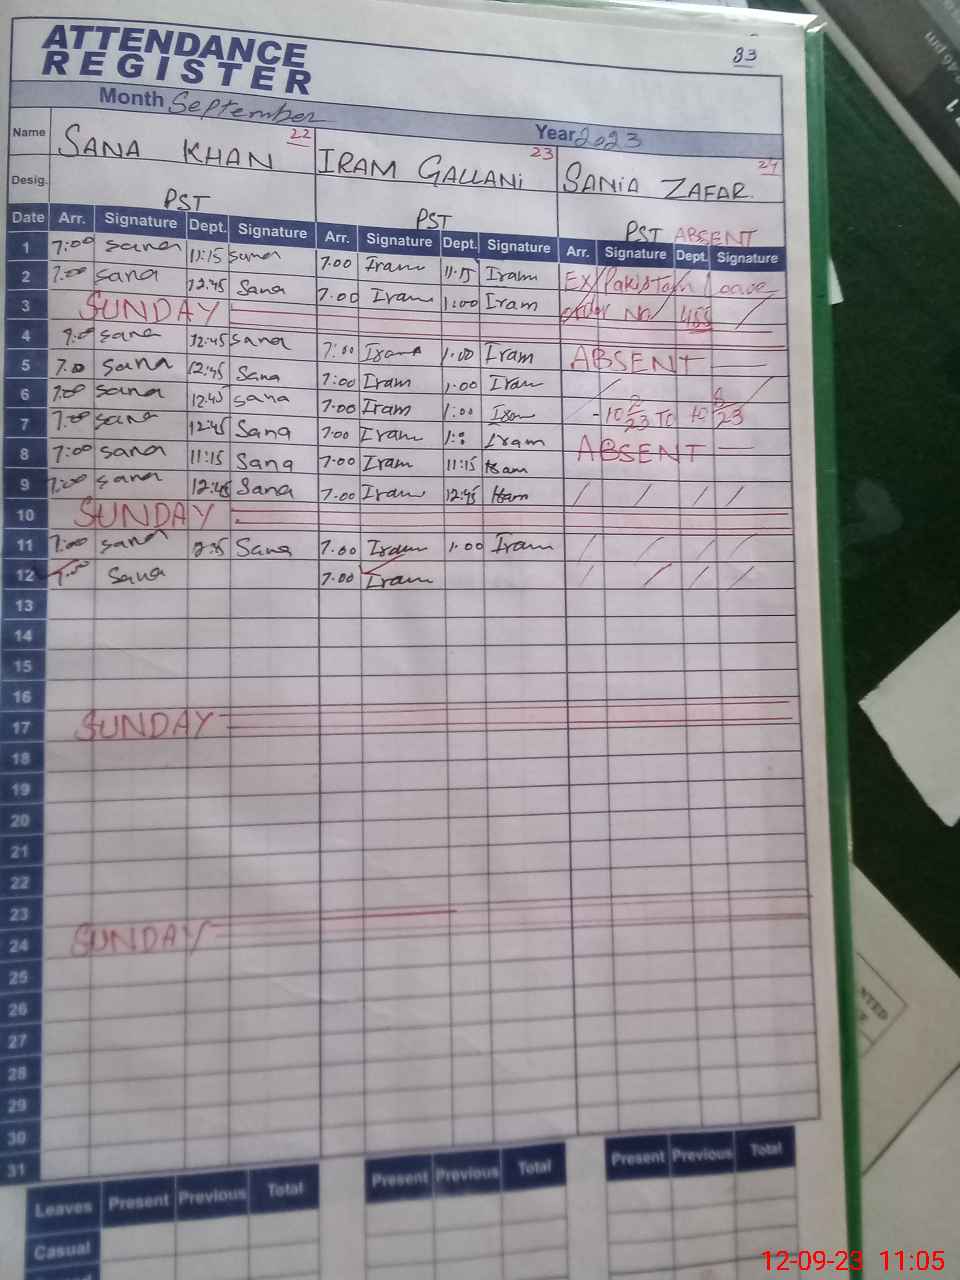 83
ATTENDANCE
REGISTER
Month September
Year 2023
Name SANA KHAN 22 IRAM GALLANI 23 SANIA ZAFAR 24
Desig. PST PST PST ABSENT
Date Arr. Signature Dept. Signature Arr. Signature Dept. Signature Arr. Signature Dept. Signature
1 7:00 Sana 11:15 Sana 7.00 Iram 11.15 Iram Ex/Pakistan Leave
2 7:00 Sana 12:45 Sana 7.00 Iram 1:00 Iram order No 455
3 SUNDAY
4 7:00 Sana 12:45 Sana 7:00 Iram 1.00 Iram ABSENT
5 7.00 Sana 12:45 Sana 7:00 Iram 1.00 Iram
6 7:00 Sana 12:45 Sana 7.00 Iram 1:00 Iram 10 8/23 To 10 8/23
7 7:00 Sana 12:45 Sana 7:00 Iram Iram ABSENT
8 7:00 Sana 11:15 Sana 7.00 Iram 11:15 Iram
9 7:00 Sana 12:45 Sana 7.00 Iram 12:45 Iram
10 SUNDAY
11 7:00 Sana Sana 7.00 Iram 1.00 Iram
12 7:00 Sana 7.00 Iram
13
14
15
16
17 SUNDAY
18
19
20
21
22
23
24 SUNDAY
25
26
27
28
29
30
31
Leaves Present Previous Total Present Previous Total Present Previous Total
Casual
12-09-23 11:05